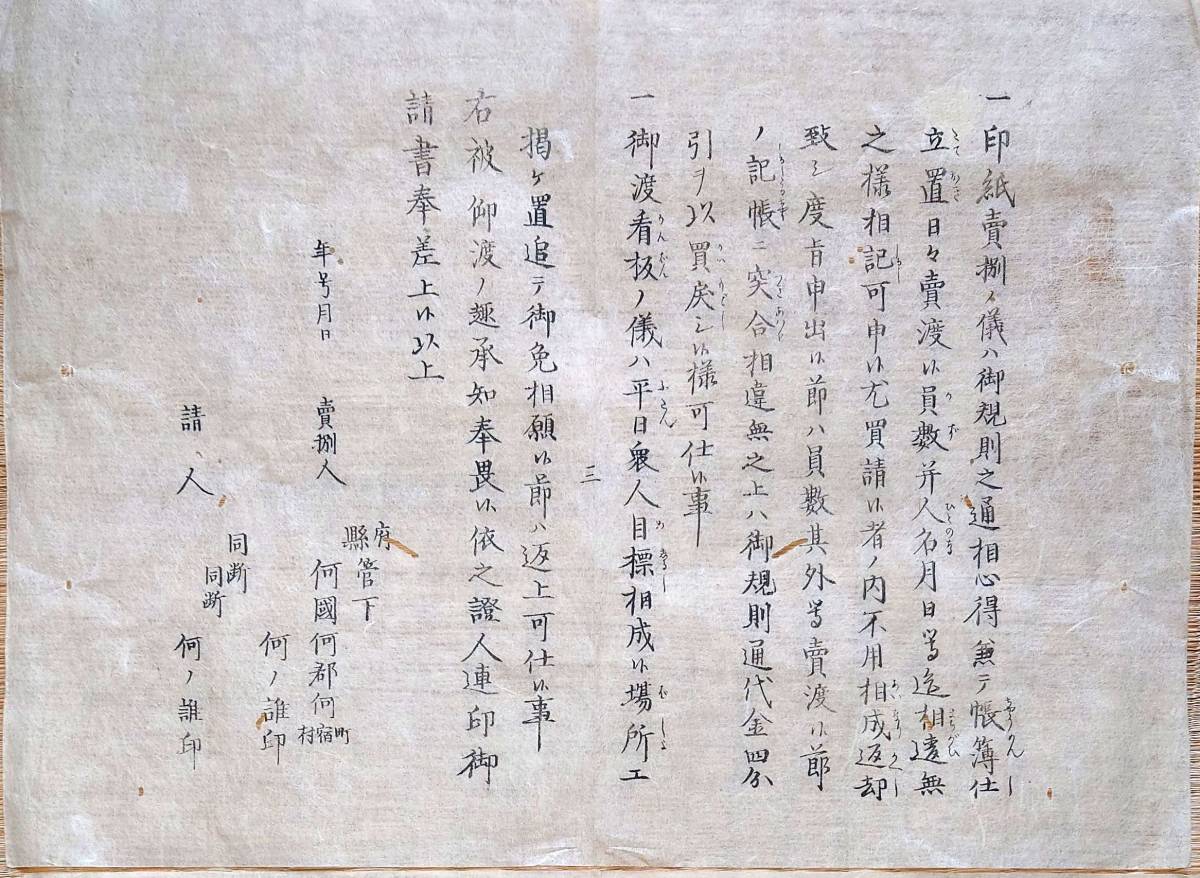 一印紙賣捌ノ儀ハ御規則之通相心得兼テ帳簿仕
立置日々賣渡候員數并人名月日等迄相違無
之様相記可申候尤買請候者ノ内不用相成返却
致シ度旨申出候節ハ員數其外等賣渡候節
ノ記帳ニ突合相違無之上ハ御規則通代金四分
引ヲ以買戻シ候様可仕候事
一御渡看板ノ儀ハ平日衆人目標相成候場所エ
三
掲ケ置追テ御免相願候節ハ返上可仕候事
右被仰渡ノ趣承知奉畏候依之證人連印御
請書奉差上候以上
年号月日
賣捌人
府縣管下
何國何郡何町宿村
何ノ誰印
同断
同断
請人
何ノ誰印